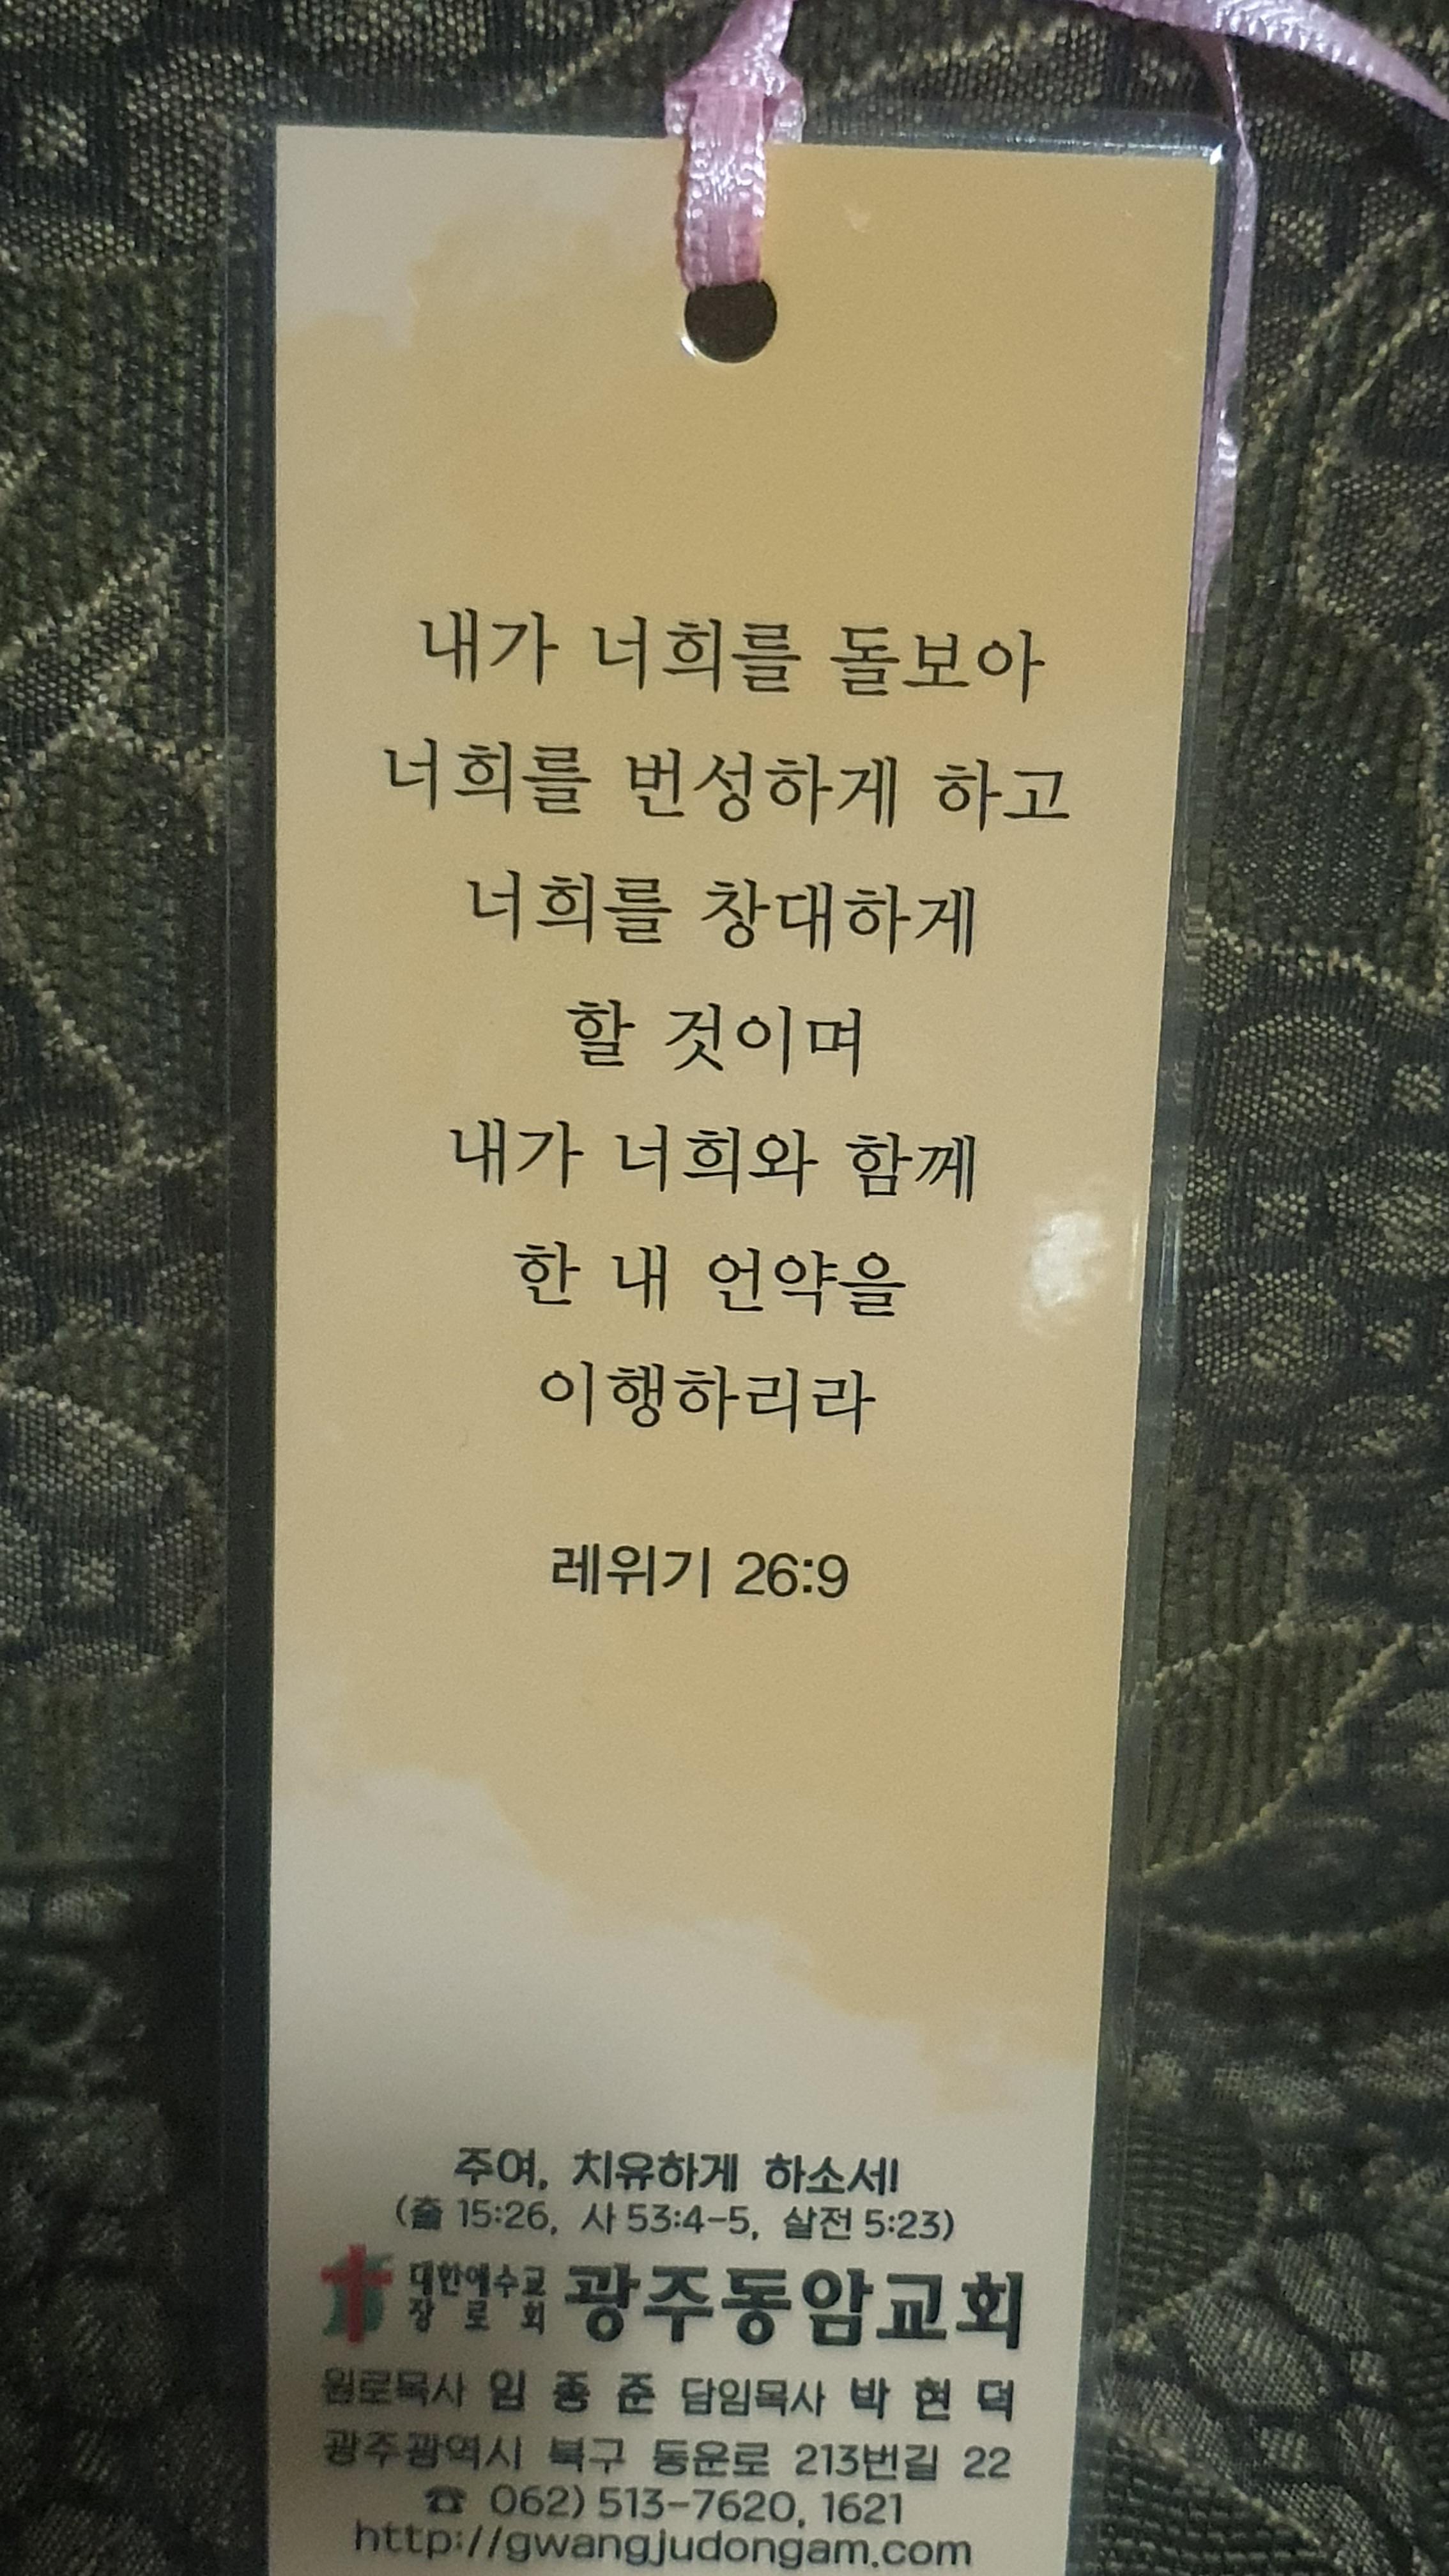 내가 너희를 돌보아
너희를 번성하게 하고
너희를 창대하게
할 것이며
내가 너희와 함께
한 내 언약을
이행하리라
레위기 26:9
주여, 치유하게 하소서!
(출 15:26, 사 53:4-5, 살전 5:23)
대한예수교
장로회
광주동암교회
원로목사 임 종 준 담임목사 박 현 덕
광주광역시 북구 동운로 213번길 22
☎ 062) 513-7620, 1621
http://gwangjudongam.com